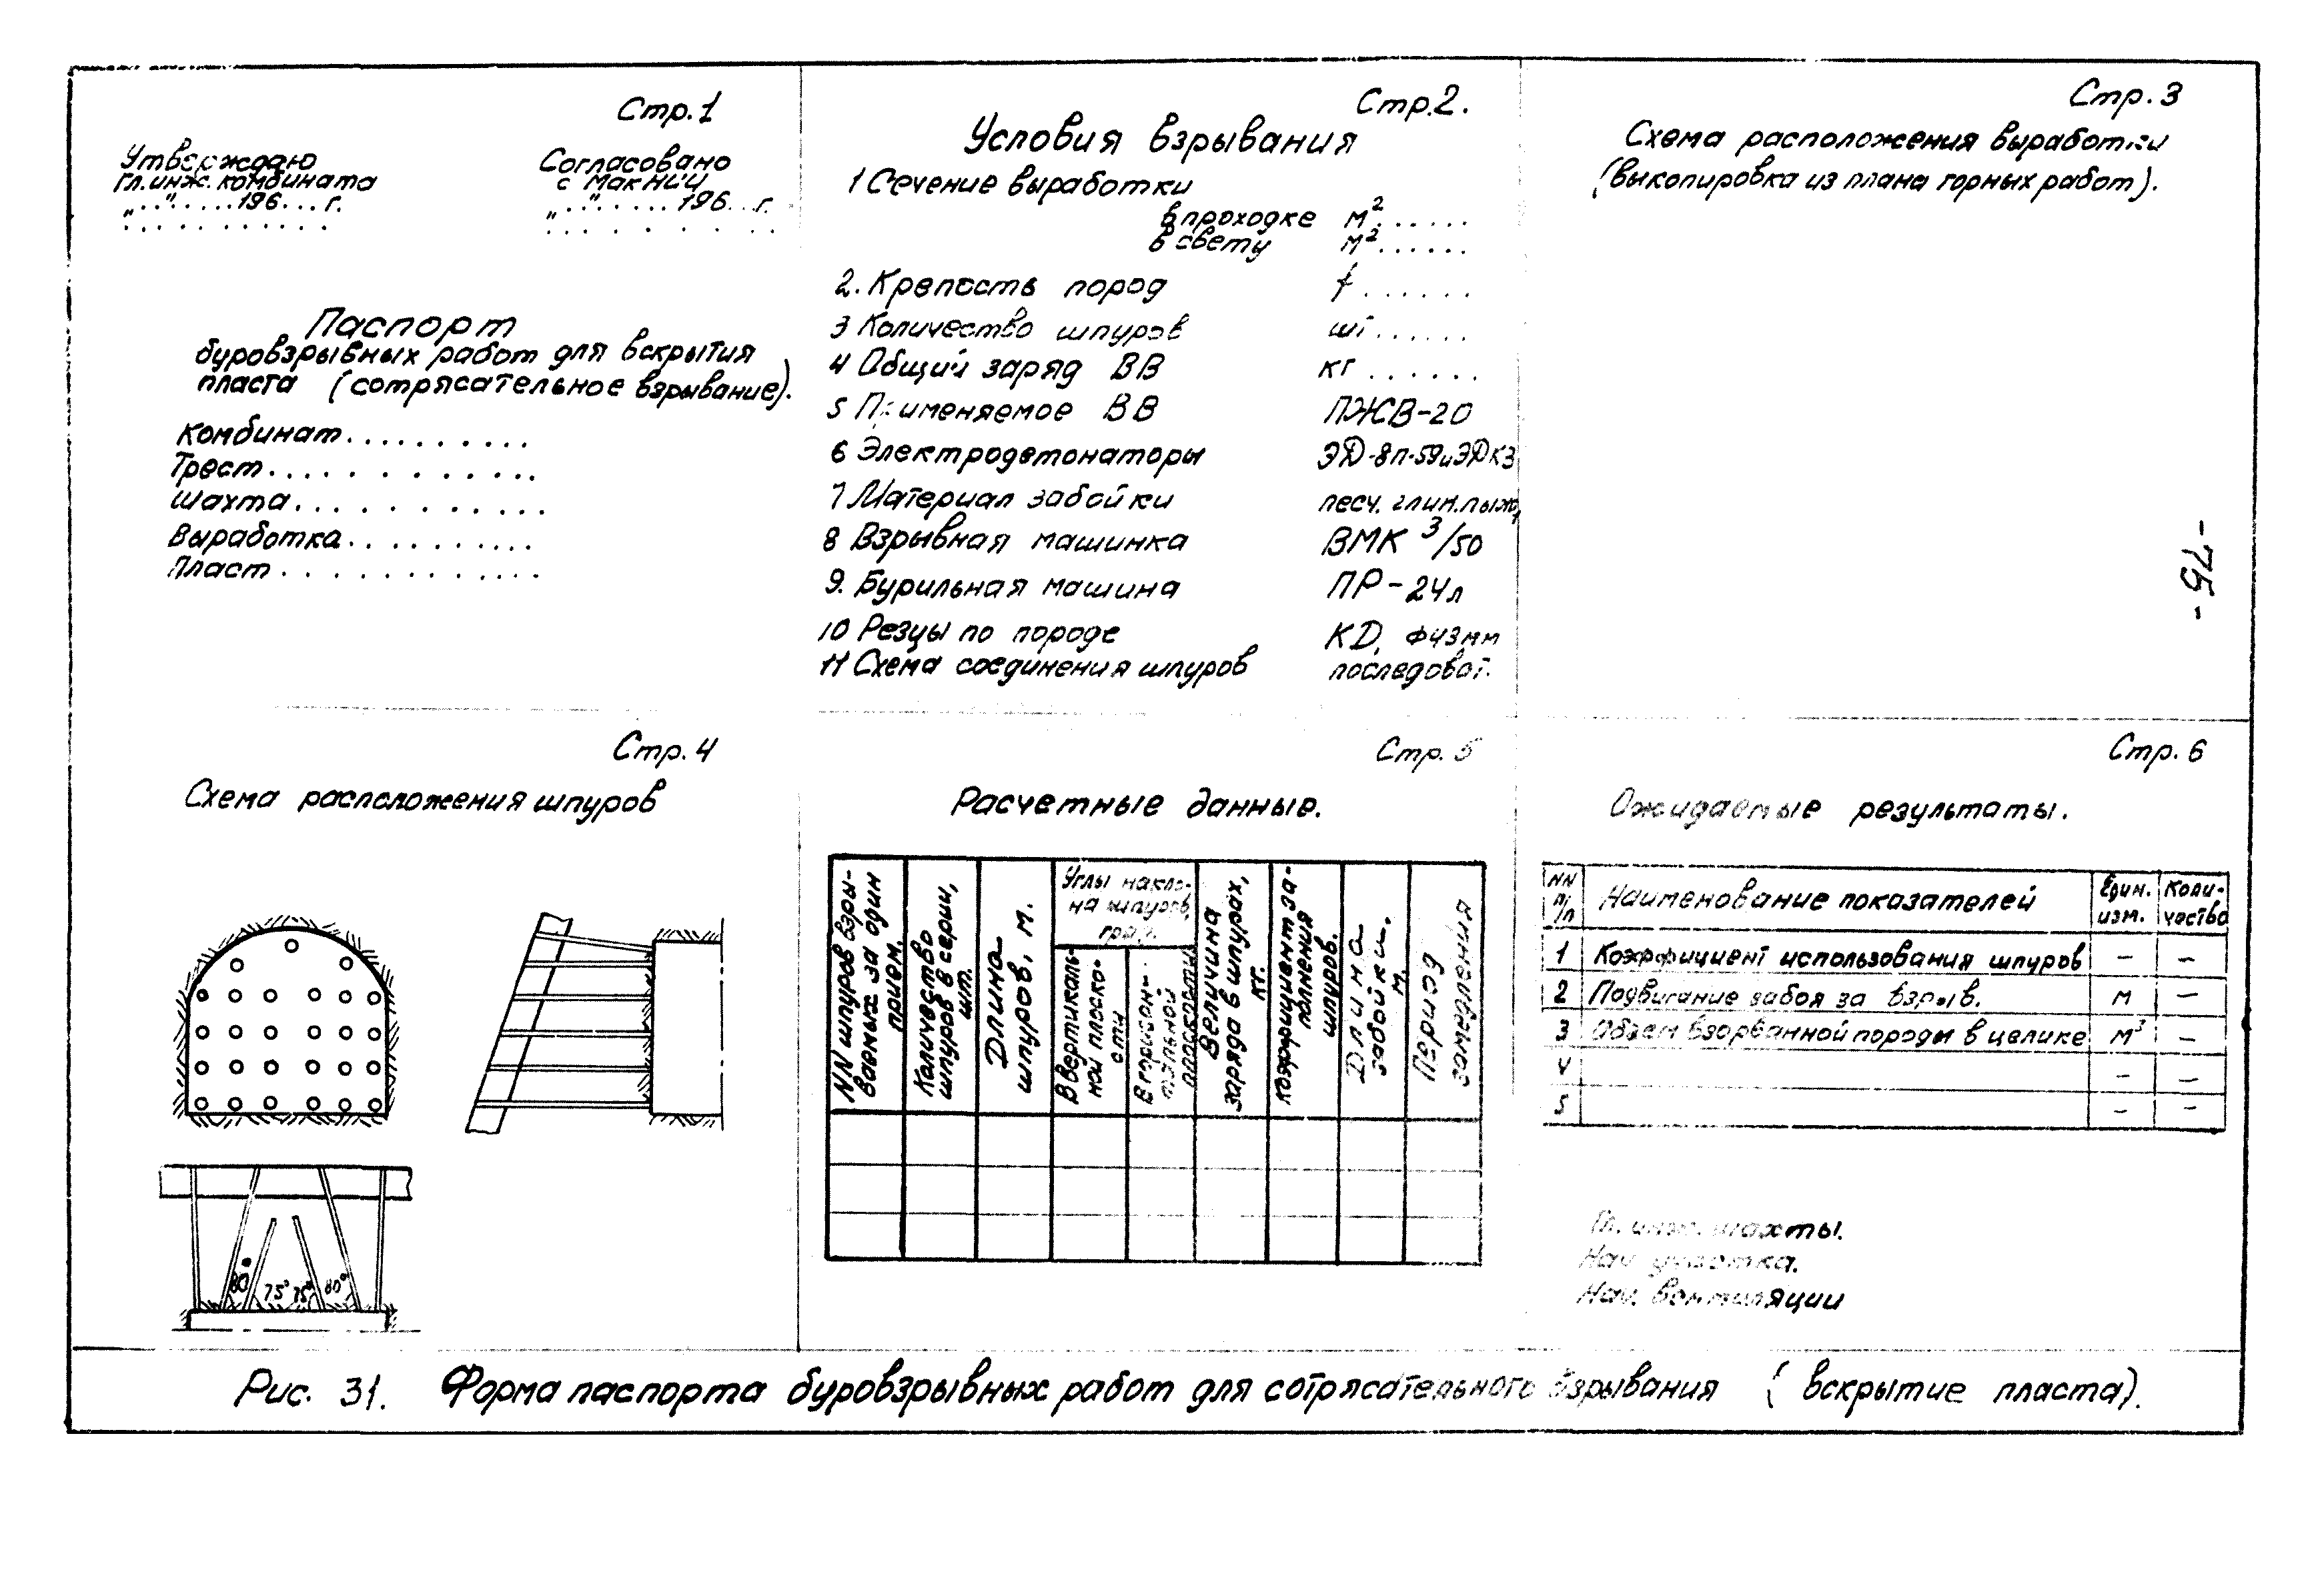 Стр.1
Утверждаю
гл.инж. комбината
„..“.....196...г.
. . . . . . . . . . .
Согласовано
с МакНИИ
„..“.....196...г.
. . . . . . . .
Паспорт
буровзрывных работ для вскрытия
пласта (сотрясательное взрывание).
Комбинат..........
Трест............
Шахта............
Выработка..........
Пласт............
Стр.2.
Условия взрывания
1 Сечение выработки
в проходке м²......
в свету м²......
2. Крепость пород f......
3 Количество шпуров шт......
4 Общий заряд ВВ кг......
5 Применяемое ВВ ПЖВ-20
6 Электродетонаторы ЭД-8п-59иЭДКЗ
7 Материал забойки песч. глин.пыж,
8 Взрывная машинка ВМК 3/50
9. Бурильная машина ПР-24л
10 Резцы по породе КД, Ф43мм
11 Схема соединения шпуров последоват.
Стр.3
Схема расположения выработки
(выкопировка из плана горных работ).
-75-
Стр.4
Схема расположения шпуров
80°
75°
75°
80°
Стр.5
Расчетные данные.
NN шпуров взры-
ваемых за один
прием.
Количество
шпуров в серии,
шт.
Длина
шпуров, м.
Углы накло-
на шпуров,
град.
В вертикаль-
ной плоско-
сти
В горизон-
тальной
плоскости
Величина
заряда в шпурах,
кг.
Коэффициент за-
полнения
шпуров.
Длина
забойки.
м.
Период
замедления
Стр.6
Ожидаемые результаты.
NN п/п Наименование показателей Един. изм. Коли-чество
1 Коэффициент использования шпуров – –
2 Подвигание забоя за взрыв. м –
3 Объем взорванной породы в целике м³ –
4 – –
5 – –
Гл. инж. шахты.
Нач участка.
Нач. вентиляции
Рис. 31. Форма паспорта буровзрывных работ для сотрясательного взрывания (вскрытие пласта).